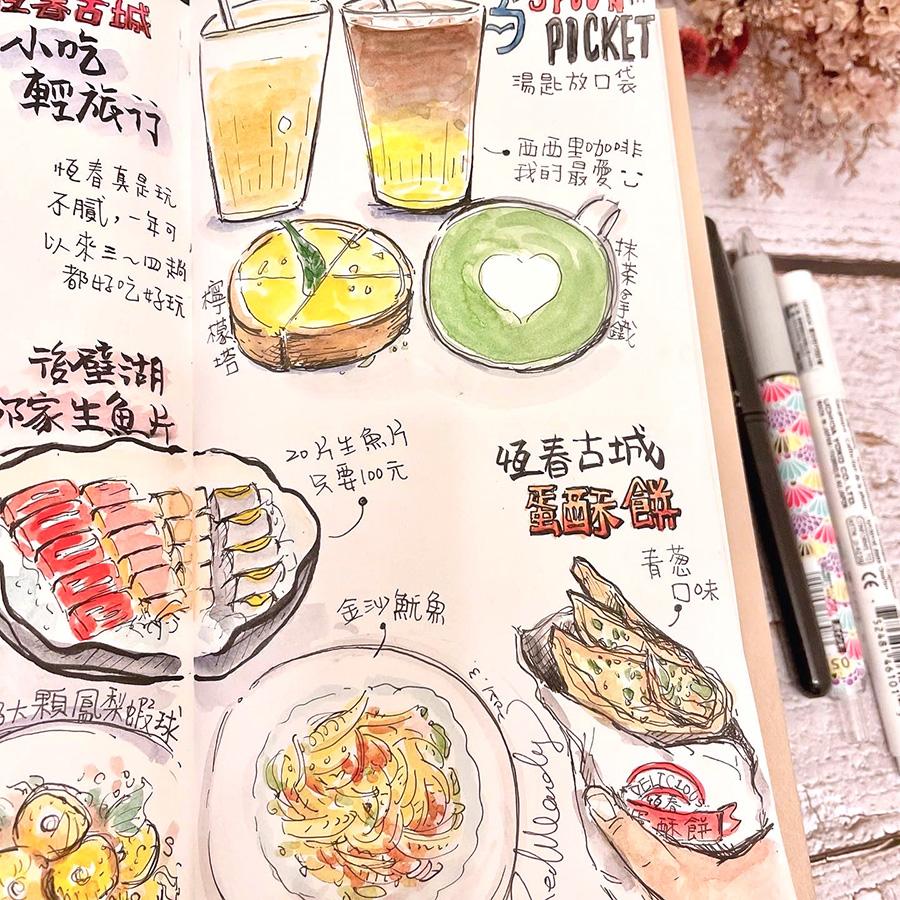 恆春古城
小吃
輕旅行
恆春真是玩
不膩，一年可
以來三～四趟
都好吃好玩
後壁湖
邱家生魚片
大顆鳳梨蝦球
SPOON IN
POCKET
湯匙放口袋
西西里咖啡
我的最愛
檸檬塔
抹茶拿鐵
20片生魚片
只要100元
金沙魷魚
恆春古城
蛋酥餅
青蔥
口味
DELICIOUS
恆春
蛋酥餅
05